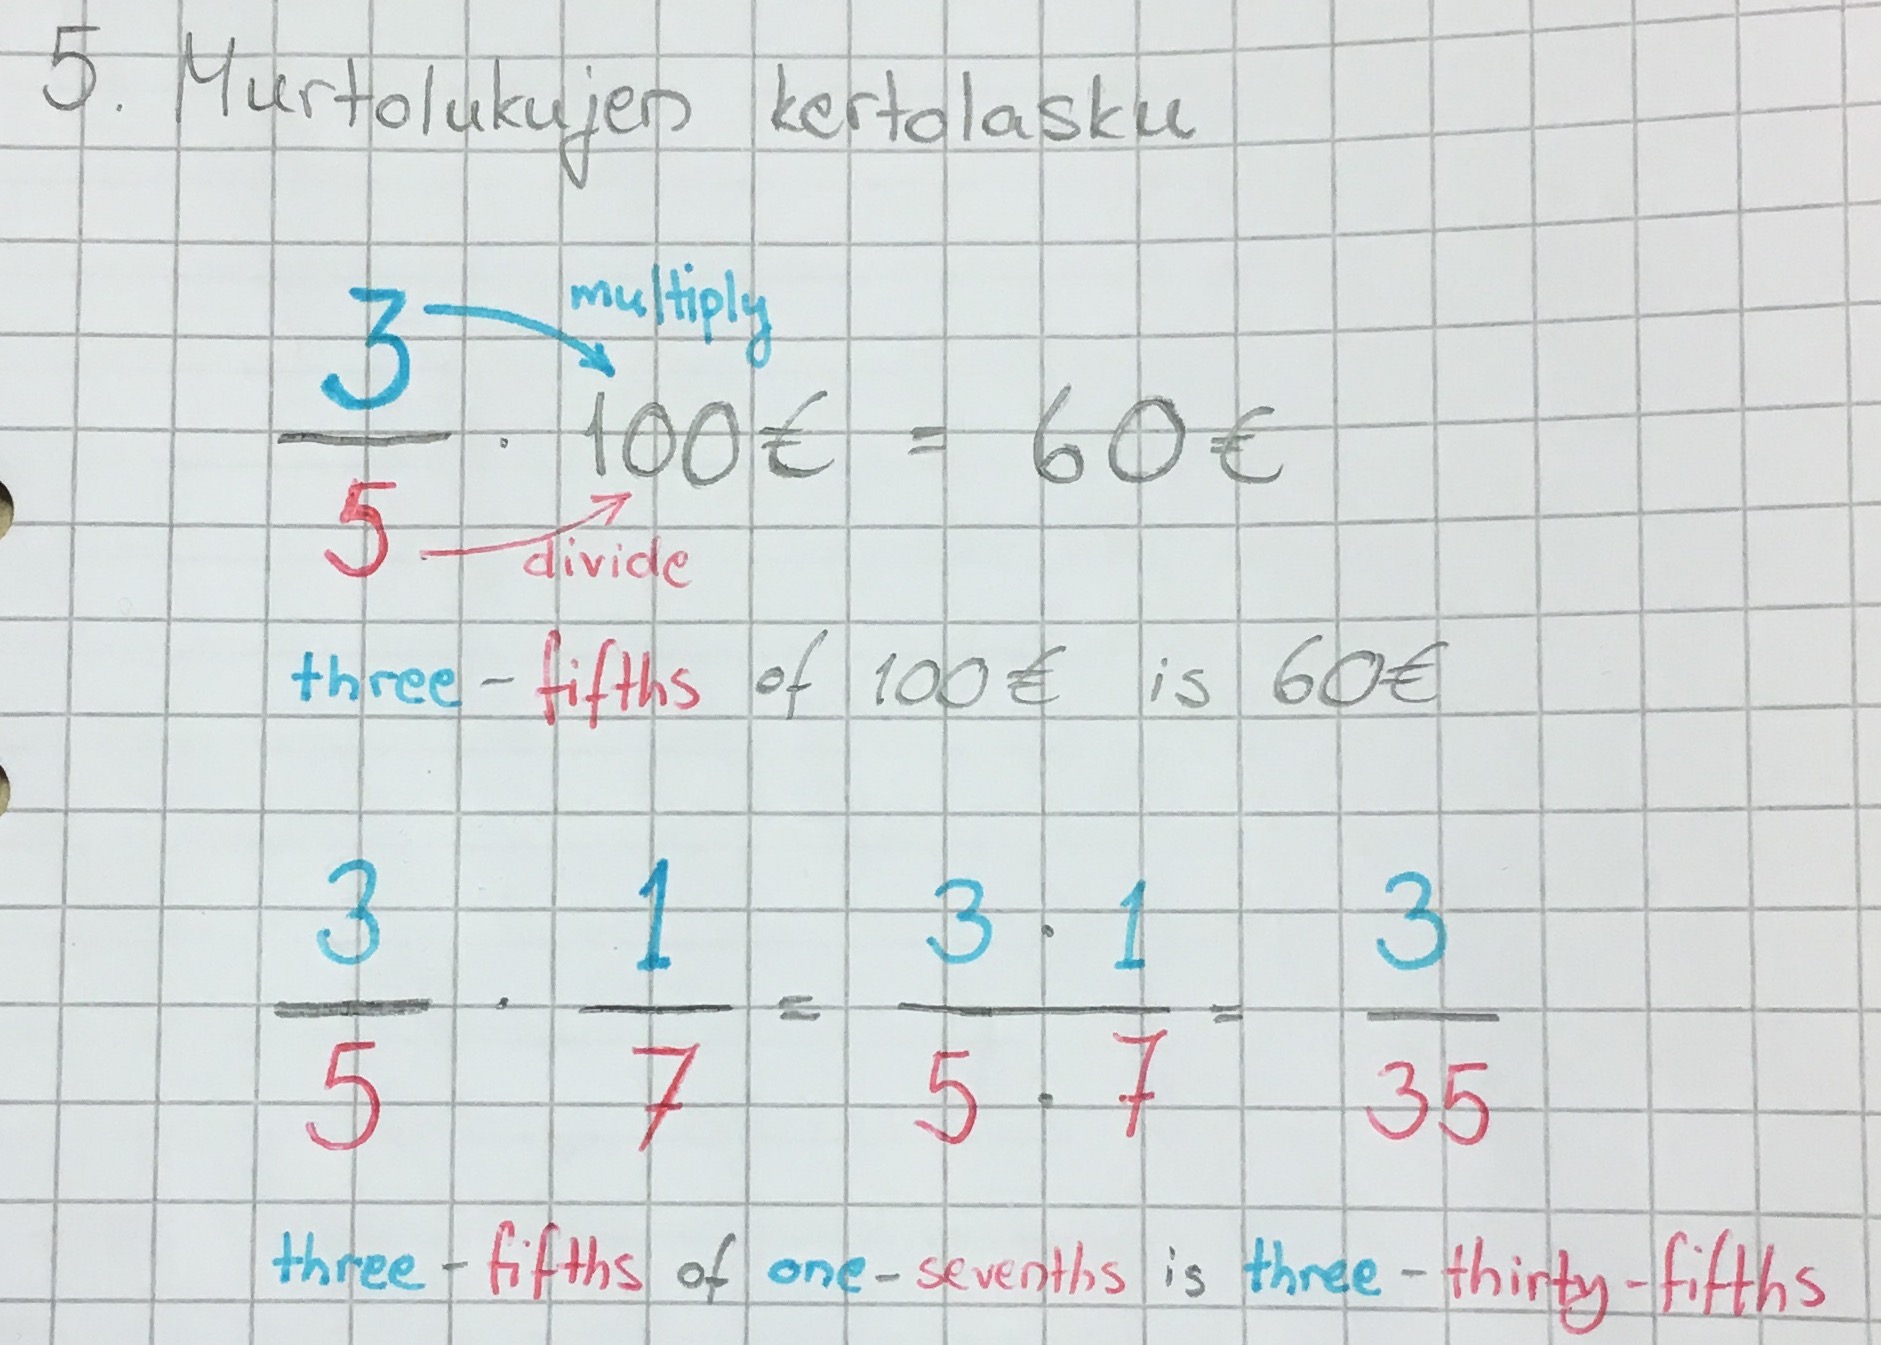 5. Murtolukujen kertolasku
multiply
3/5 · 100€ = 60€
divide
three-fifths of 100€ is 60€
3/5 · 1/7 = 3 · 1/5 · 7 = 3/35
three-fifths of one-sevenths is three-thirty-fifths